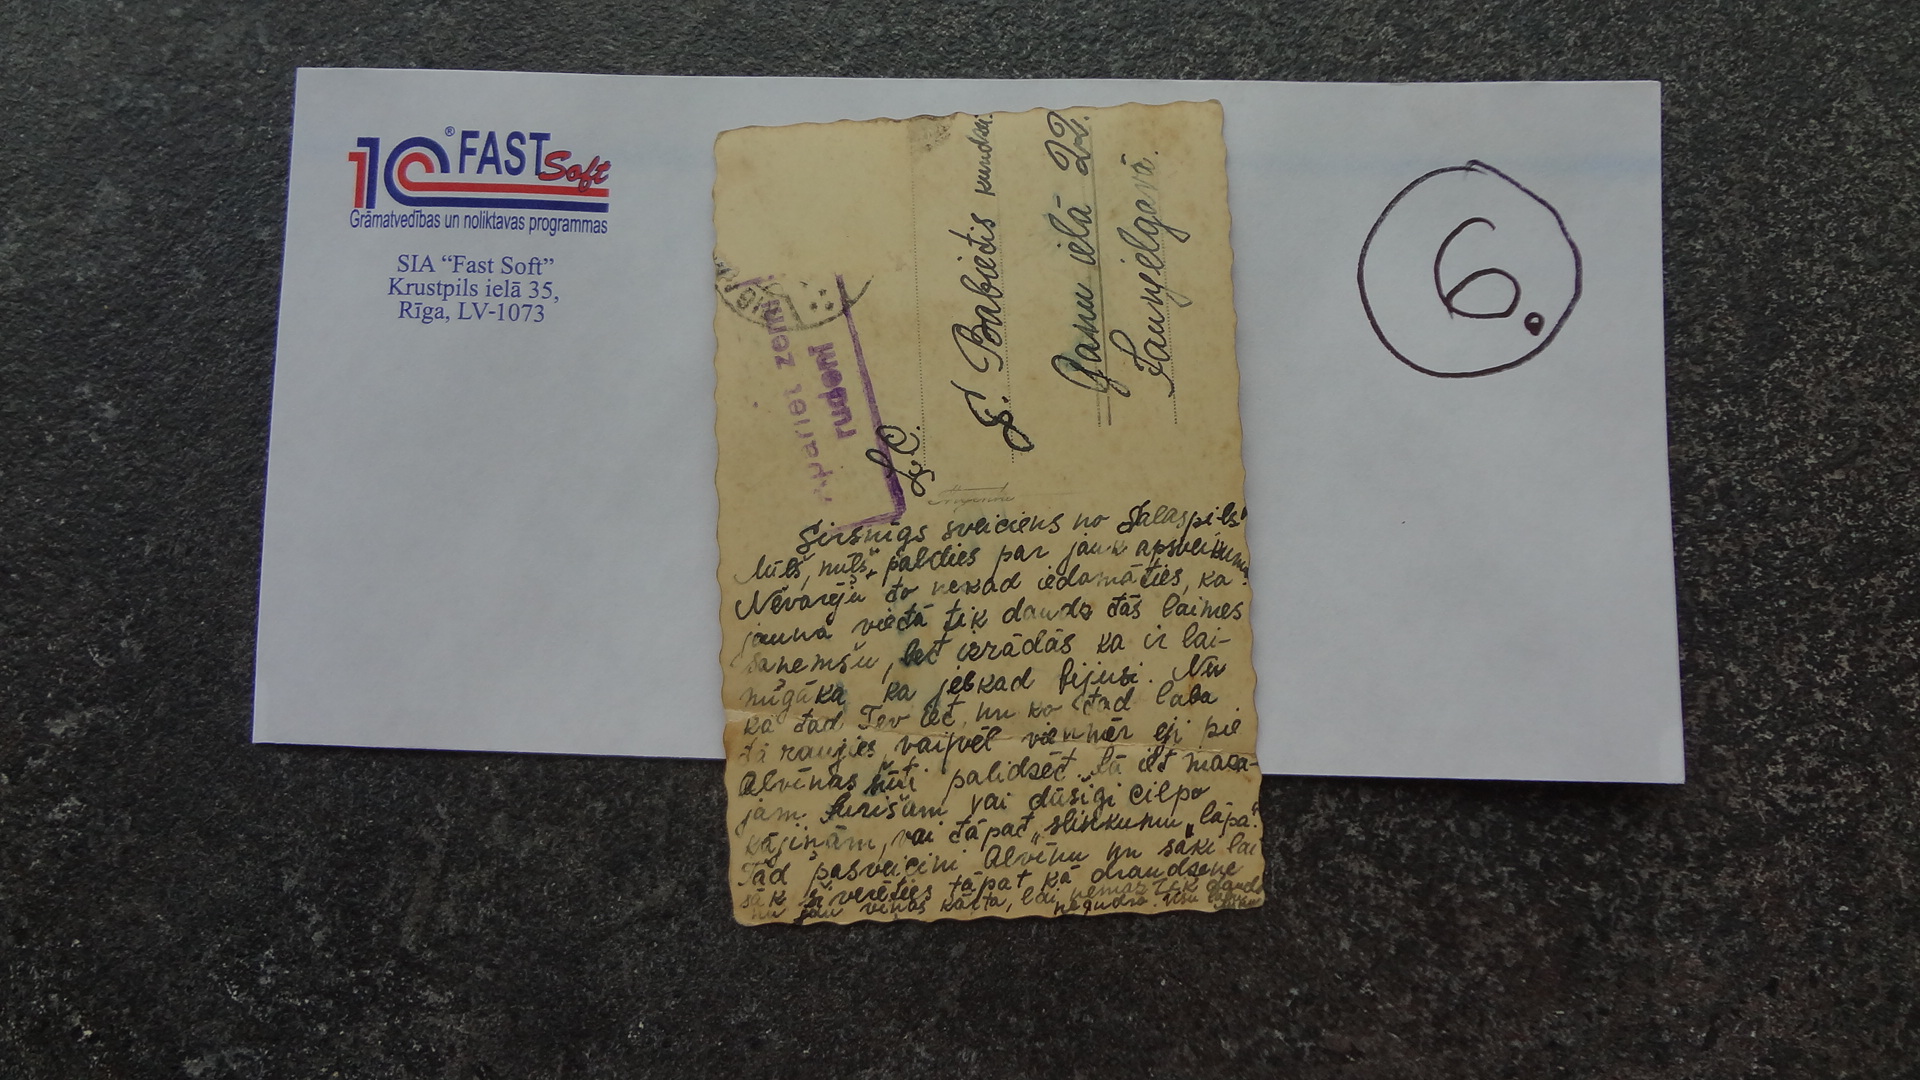 10 ® FAST Soft
Grāmatvedības un noliktavas programmas
SIA “Fast Soft”
Krustpils ielā 35,
Rīga, LV-1073
6.
zemi
rudenī
L. C.
E. Babietis kundzei
Ganu ielā 22.
Jaunjelgavā.
Sirsnīgs sveiciens no Salaspils!
Mīļš, mīļš, paldies par jauk apsveikumu
Nevarēju to nekad iedomāties, ka
jauna vietā tik daudz tās laimes
saņemšu, bet izrādās ka ir lai-
mīgāka ka jebkad bijusi. Nu
kā tad Tev iet, nu ko tad laba
tā raugies, vai vēl vienmēr ej pie
Alvīnas palīdzēt
vai dūšīgi cilpo
kājiņām, vai tāpat „slinkumu lāpa.“
Tad pasveicini Alvīnu un saki lai
sāk tāpat kā draudzene
viņas kārta, lai nemaz tik daudz